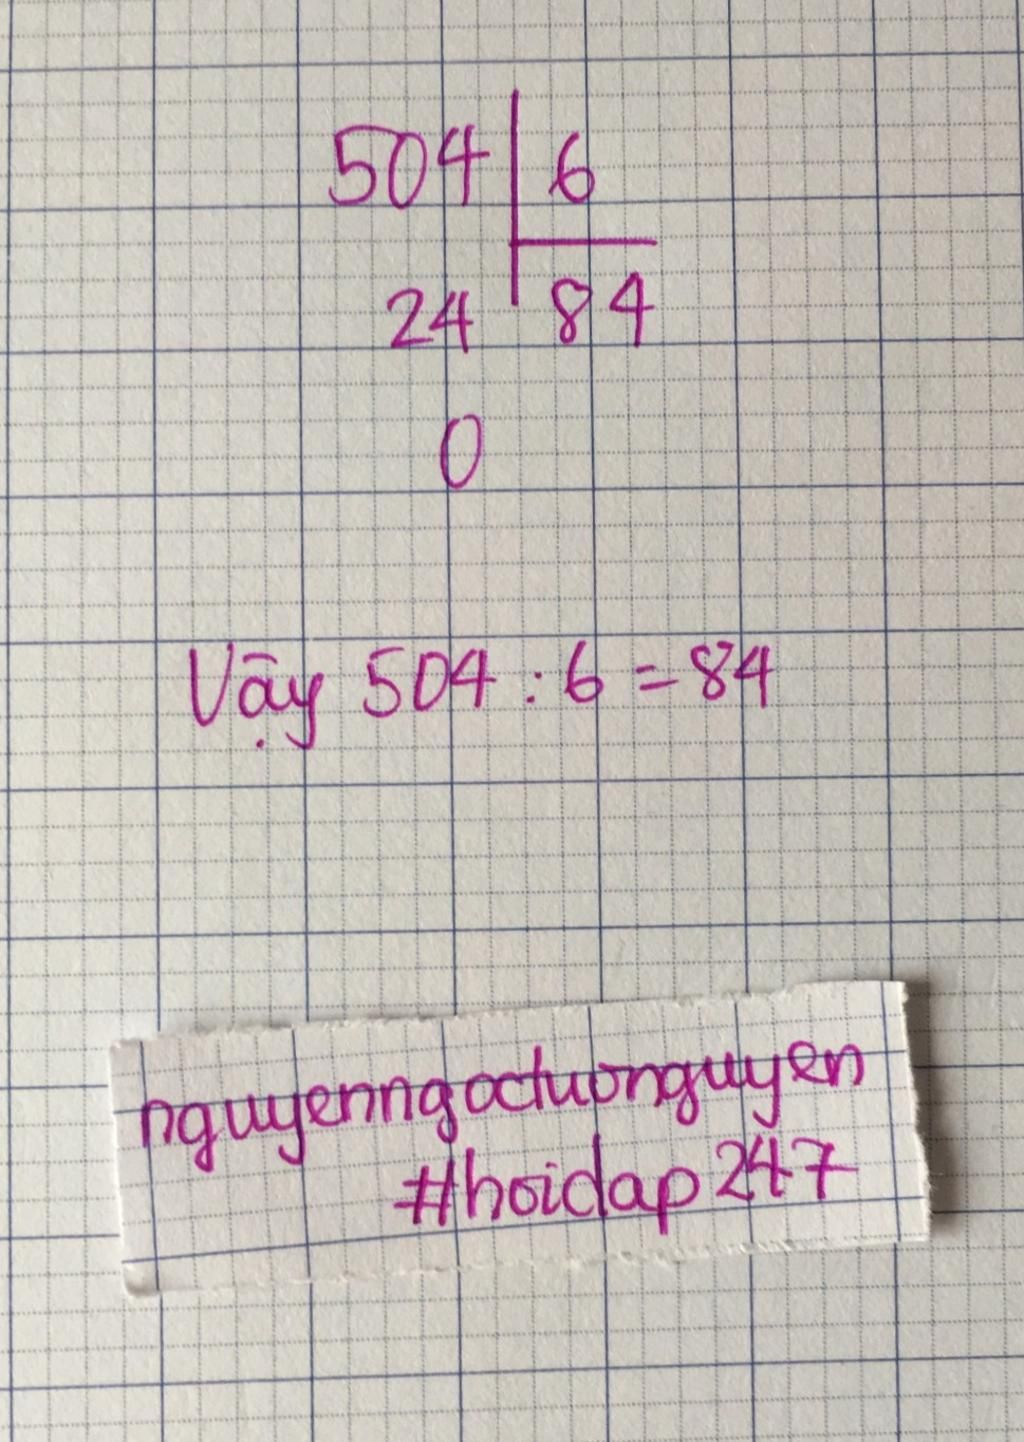 504 6
24 84
0
Vậy 504 : 6 = 84
nguyenngoctuonguyen
#hoidap247